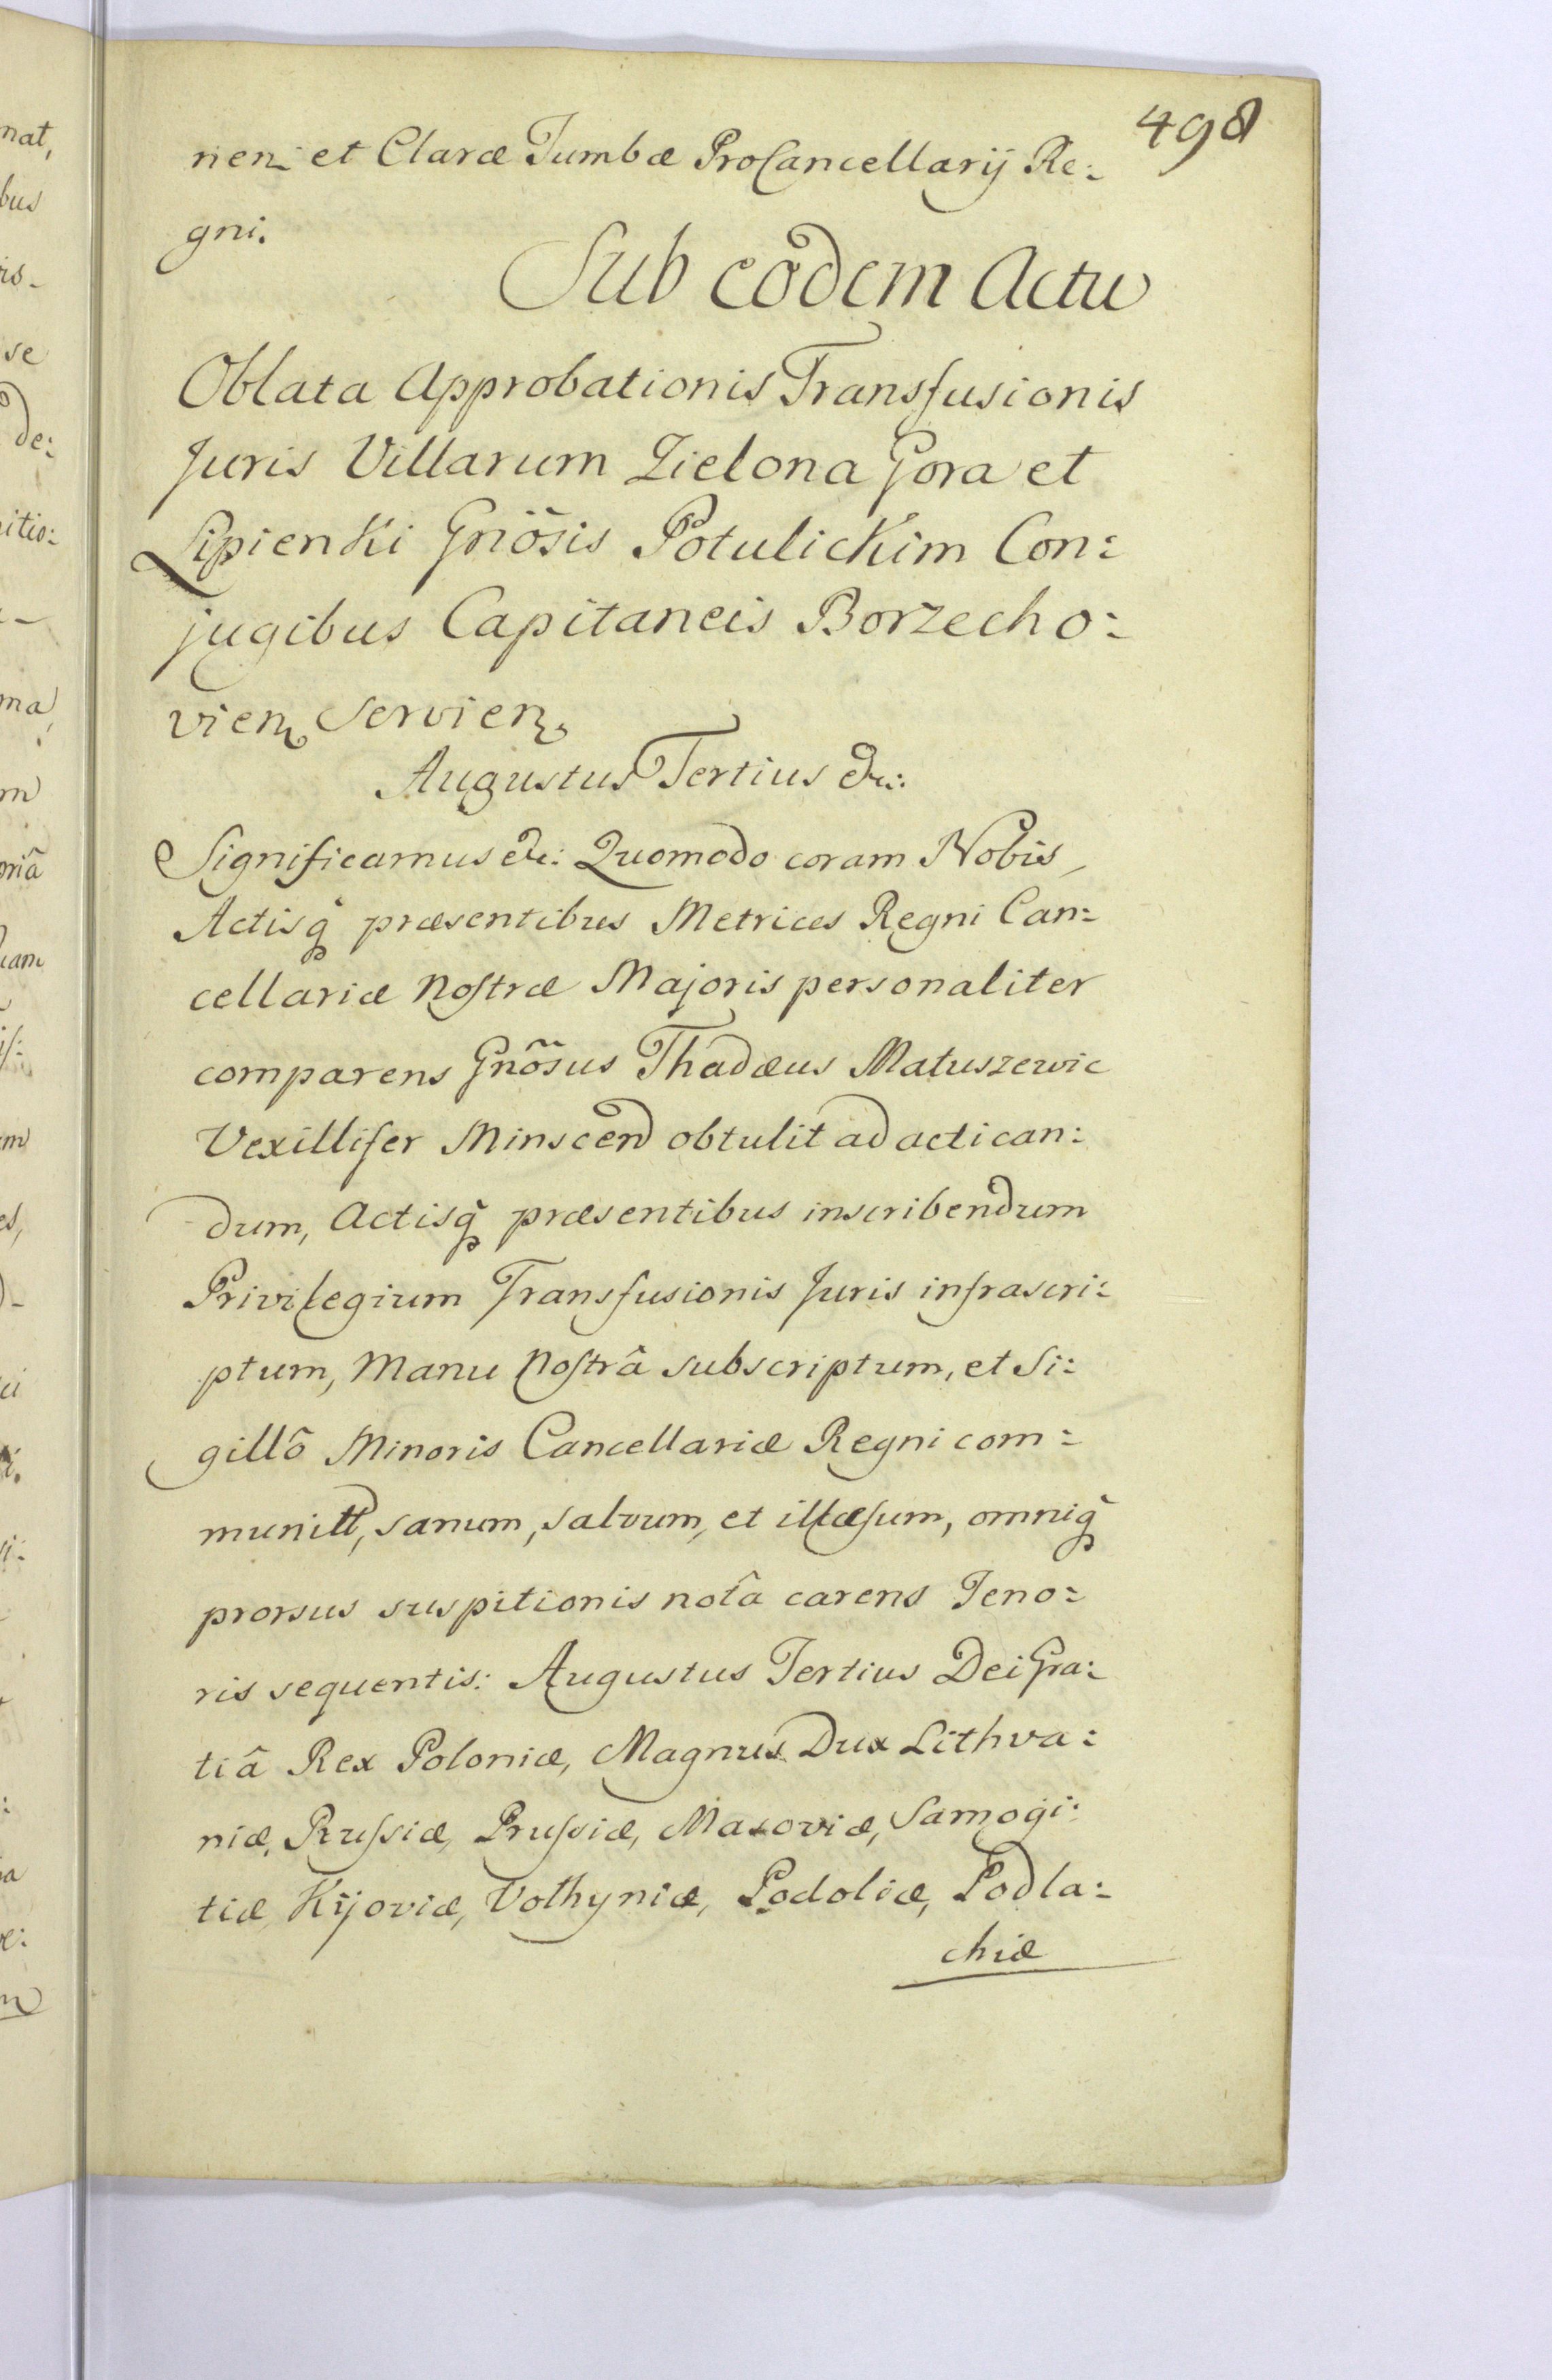 498
nen: et Claræ Tumbæ ProCancellarij Re:
gni.
Sub eodem Actu
Oblata Approbationis Transfusionis
Juris Villarum Zielona Gora et
Lipienki Gñosis Potulickim Con:
jugibus Capitaneis Borzecho:
vien. Servien.
Augustus Tertius &c:
Significamus &c: Quomodo coram Nobis,
Actisq̃ præsentibus Metrices Regni Can:
cellariæ Nostræ Majoris personaliter
comparens Gñosus Thadæus Matuszewic
Vexillifer Minscen obtulit ad actican:
dum, Actisq̃ præsentibus inscribendum
Privilegium Transfusionis Juris infrascri:
ptum, Manu Nostrâ subscriptum, et Si:
gillô Minoris Cancellariæ Regni com:
munitt, sanum, salvum, et illæsum, omniq̃
prorsus suspitionis notâ carens Teno:
ris sequentis: Augustus Tertius Dei Gra:
tiâ Rex Poloniæ, Magnus Dux Lithva:
niæ, Russiæ, Prussiæ, Mazoviæ, Samogi:
tiæ, Kijoviæ, Volhyniæ, Podoliæ, Podla:
chiæ